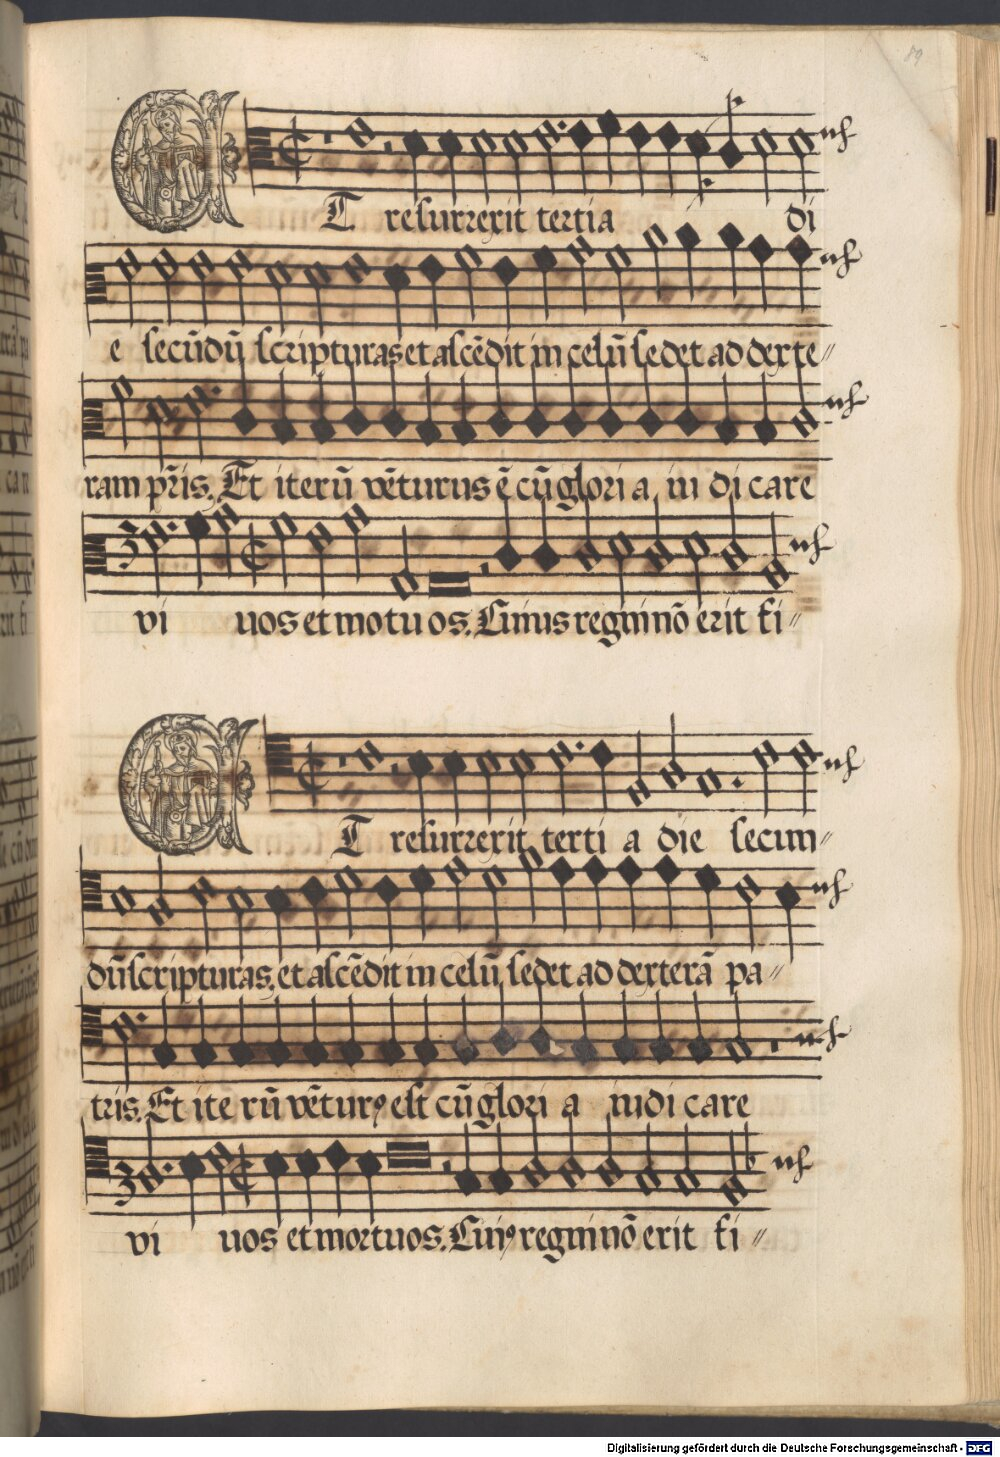 89
Et resurrexit tertia di
e secūdū scripturas et ascēdit in celū sedet ad dexte//
ram pr̄is. Et iterū vēturus ē cū glori a iu di care
vi uos et motu os. Cuius regni nō erit fi//
Et resurrexit terti a die secun//
dū scripturas, et ascēdit in celū, sedet ad dexterā pa//
tris. Et ite rū vētur9 est cū glori a iudi care
vi uos et mortuos. Cui9 regni nō erit fi//
Digitalisierung gefördert durch die Deutsche Forschungsgemeinschaft - DFG